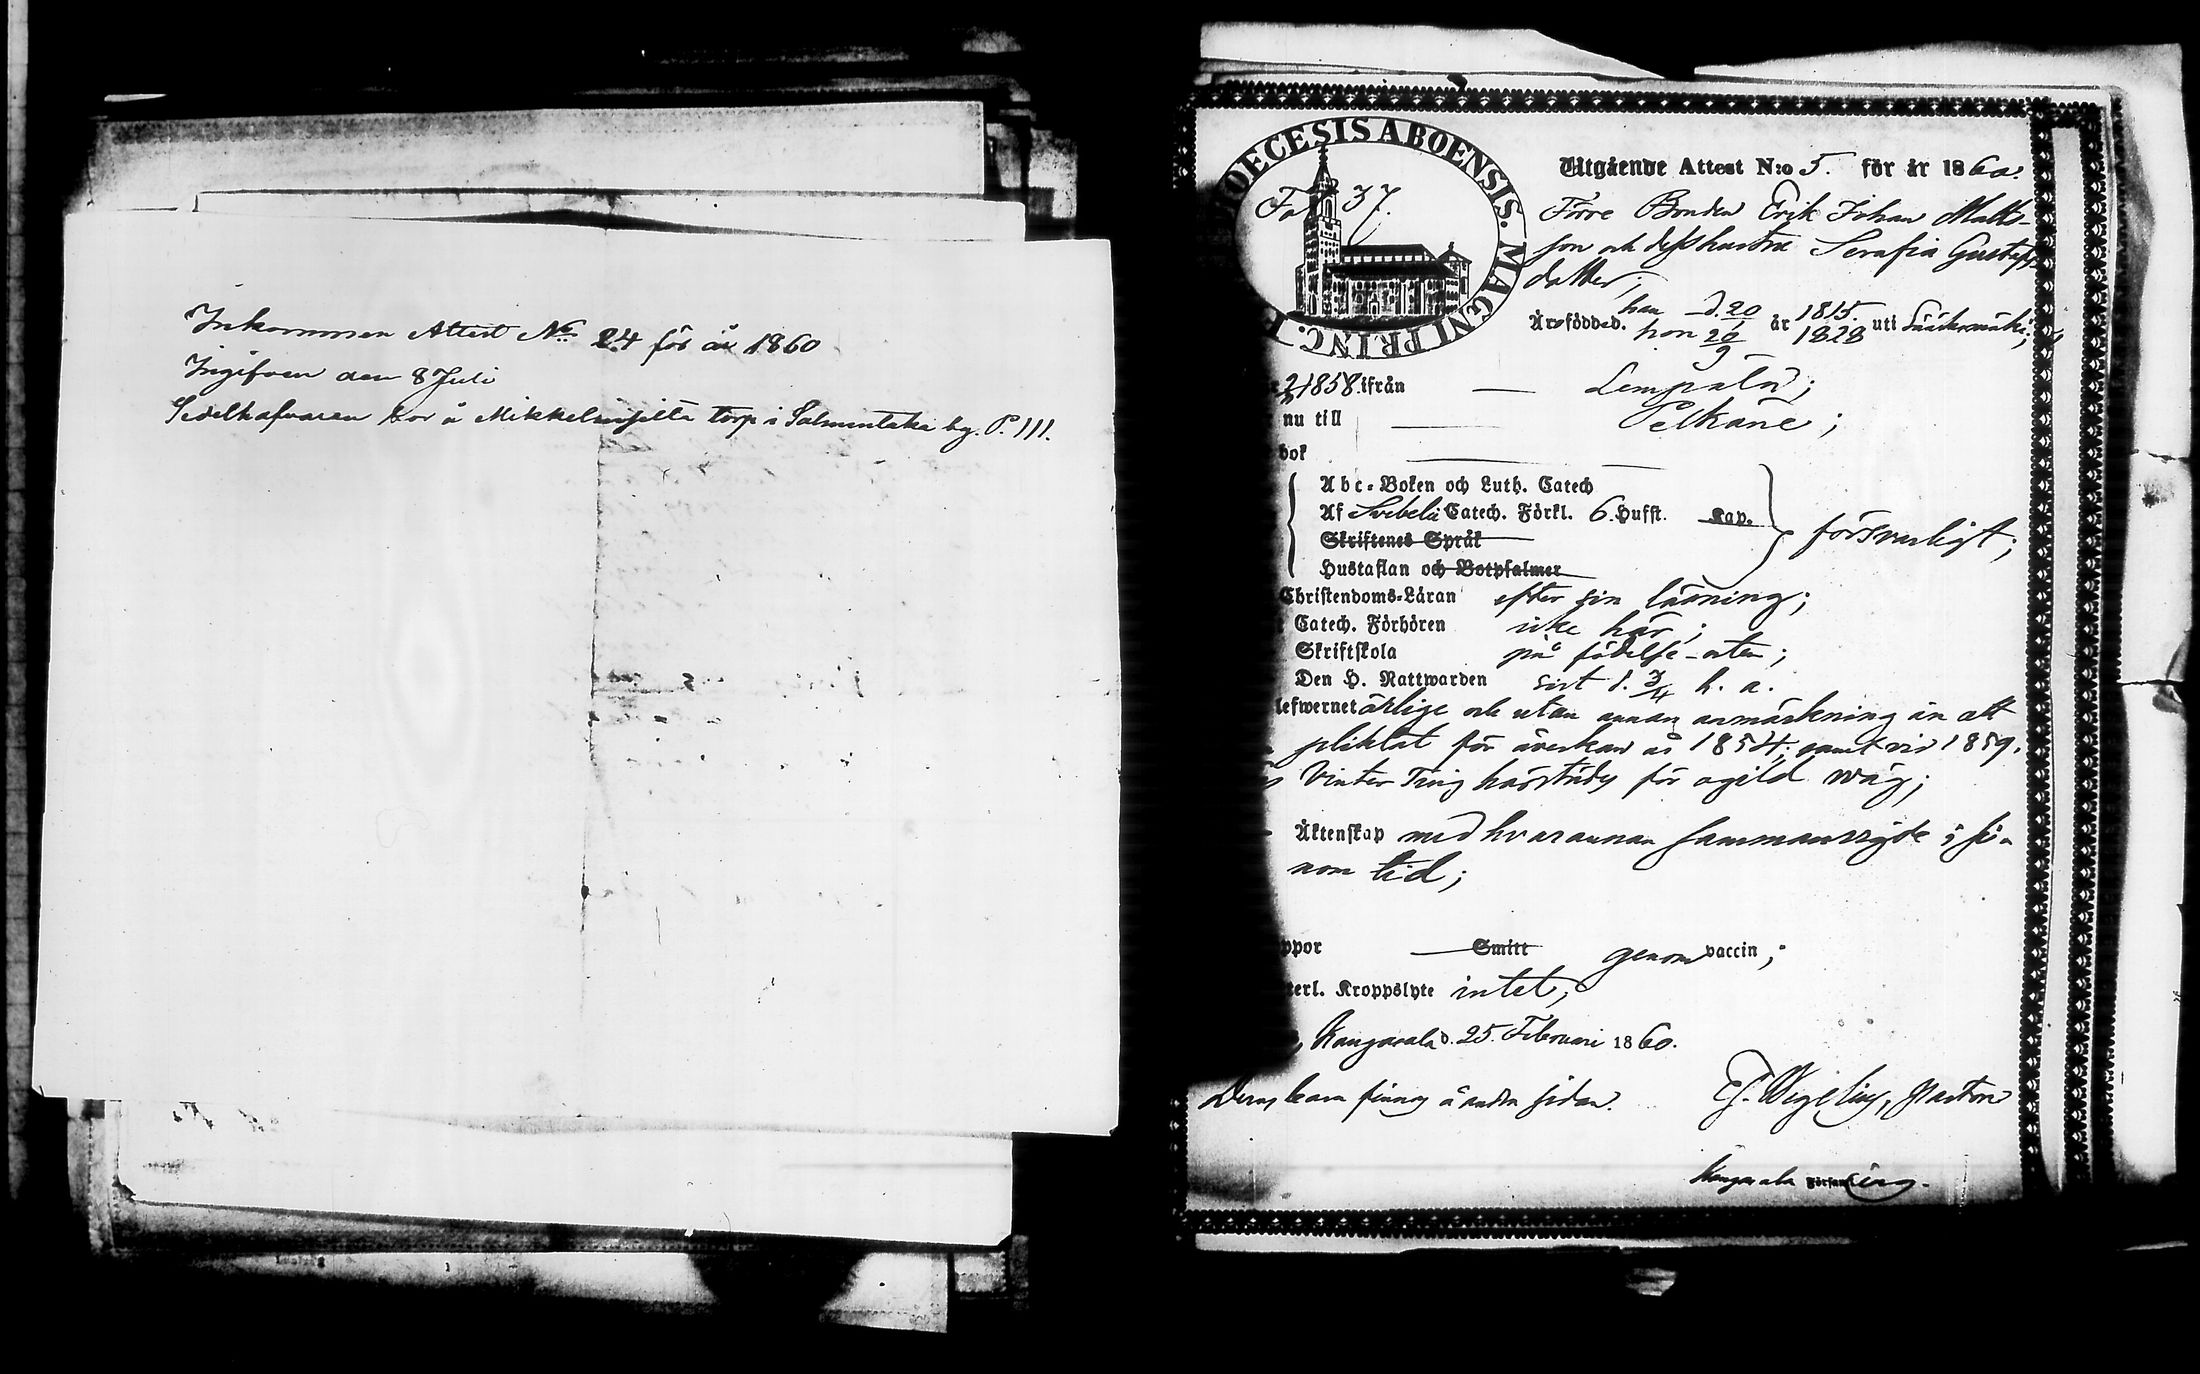 Inkommen Attest No 24 för år 1860
Ingifven den 8 Juli
Sedelhafvaren bor å Mikkelinsilta torp i Salmentaka by. P. 111.
DIOECESIS ABOENSIS. MAGNI PRINC. F
Fol 37.
Utgående Attest N:o 5. för år 1860.
Förre Bonden Erik Johan Matts-
son och dess hustru Serafia Gustafs
dotter;
Äro födde d. han d. 20/1 år 1815. uti
hon 26/9 1828
1858. ifrån — Lempälä;
nu till — Pelkäne;
bok
Abc-Boken och Luth. Catech
Af Svebelii Catech. Förkl. 6. Hufst. Kap.
försvarligt;
Skriftenes Språk
Hustaflan och Botpsalmer
Christendoms-Läran efter sin läsning;
Catech. Förhören icke här;
Skriftskola på födelse-orten;
Den H. Nattwarden sist d. 3/4 h. a.
lefwernet ärlige och utan annan anmärkning än att
pliktat för åverkan år 1854; samt vid 1859.
Vinter Ting härstädes för ogild wäg;
Äktenskap med hvarannan sammanvigde i si-
nom tid;
ppor — Smitt genom vaccin;
terl. Kroppslyte intet;
Kangasala d. 25. Februari 1860.
Deras barn finnas å andra sidan.
Wigelius, Pastor
Kangasala Församling.